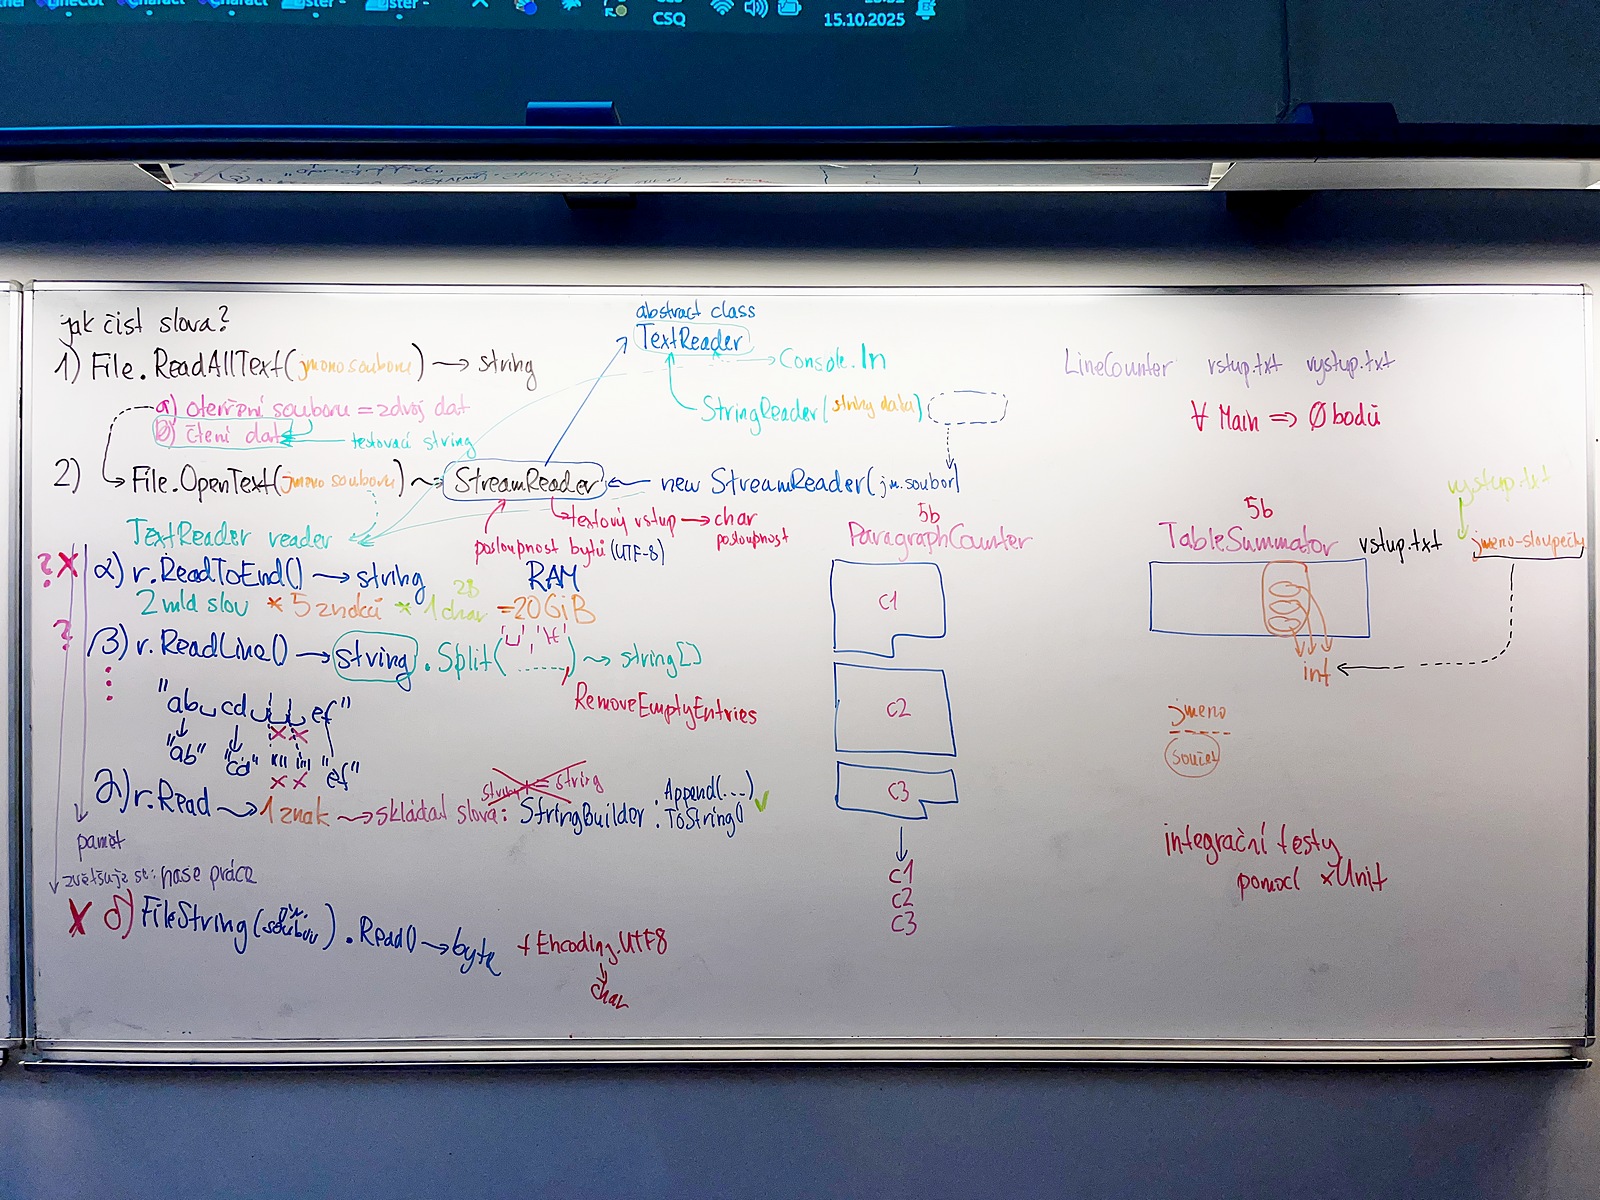 CSQ
15.10.2025
jak číst slova?
1) File.ReadAllText(jmeno souboru) → string
a) otevření souboru = zdroj dat
b) čtení dat ← testovací string
2) File.OpenText(jmeno souboru) ~> StreamReader ← new StreamReader(jm.soubor)
abstract class
TextReader
Console.In
StringReader(string data)
textový vstup → char
posloupnost
posloupnost bytů (UTF-8)
TextReader reader
? X α) r.ReadToEnd() → string
RAM
2B
2 mld slov * 5 znaků * 1 char = 20GiB
? β) r.ReadLine() → string.Split(' ', '\t') ~> string[]
RemoveEmptyEntries
"ab cd ef"
"ab" "cd" "" "" "ef"
string += string
γ) r.Read ~> 1 znak ~> skládat slova: StringBuilder .Append(...)
.ToString() ✓
paměť
zvětšuje se: naše práce
X δ) FileString(jm. souboru).Read() → byte + Encoding.UTF8
char
5b
ParagraphCounter
C1
C2
C3
C1
C2
C3
LineCounter vstup.txt vystup.txt
∀ Main => Ø bodů
vystup.txt
5b
TableSummator vstup.txt jmeno-sloupečku
int
jmeno
součet
integrační testy
pomocí xUnit